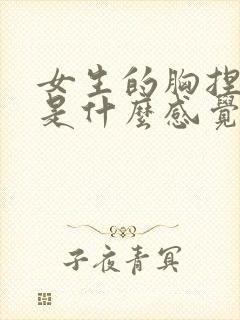 女生的胸捏
是什麼感覺
子夜青冥